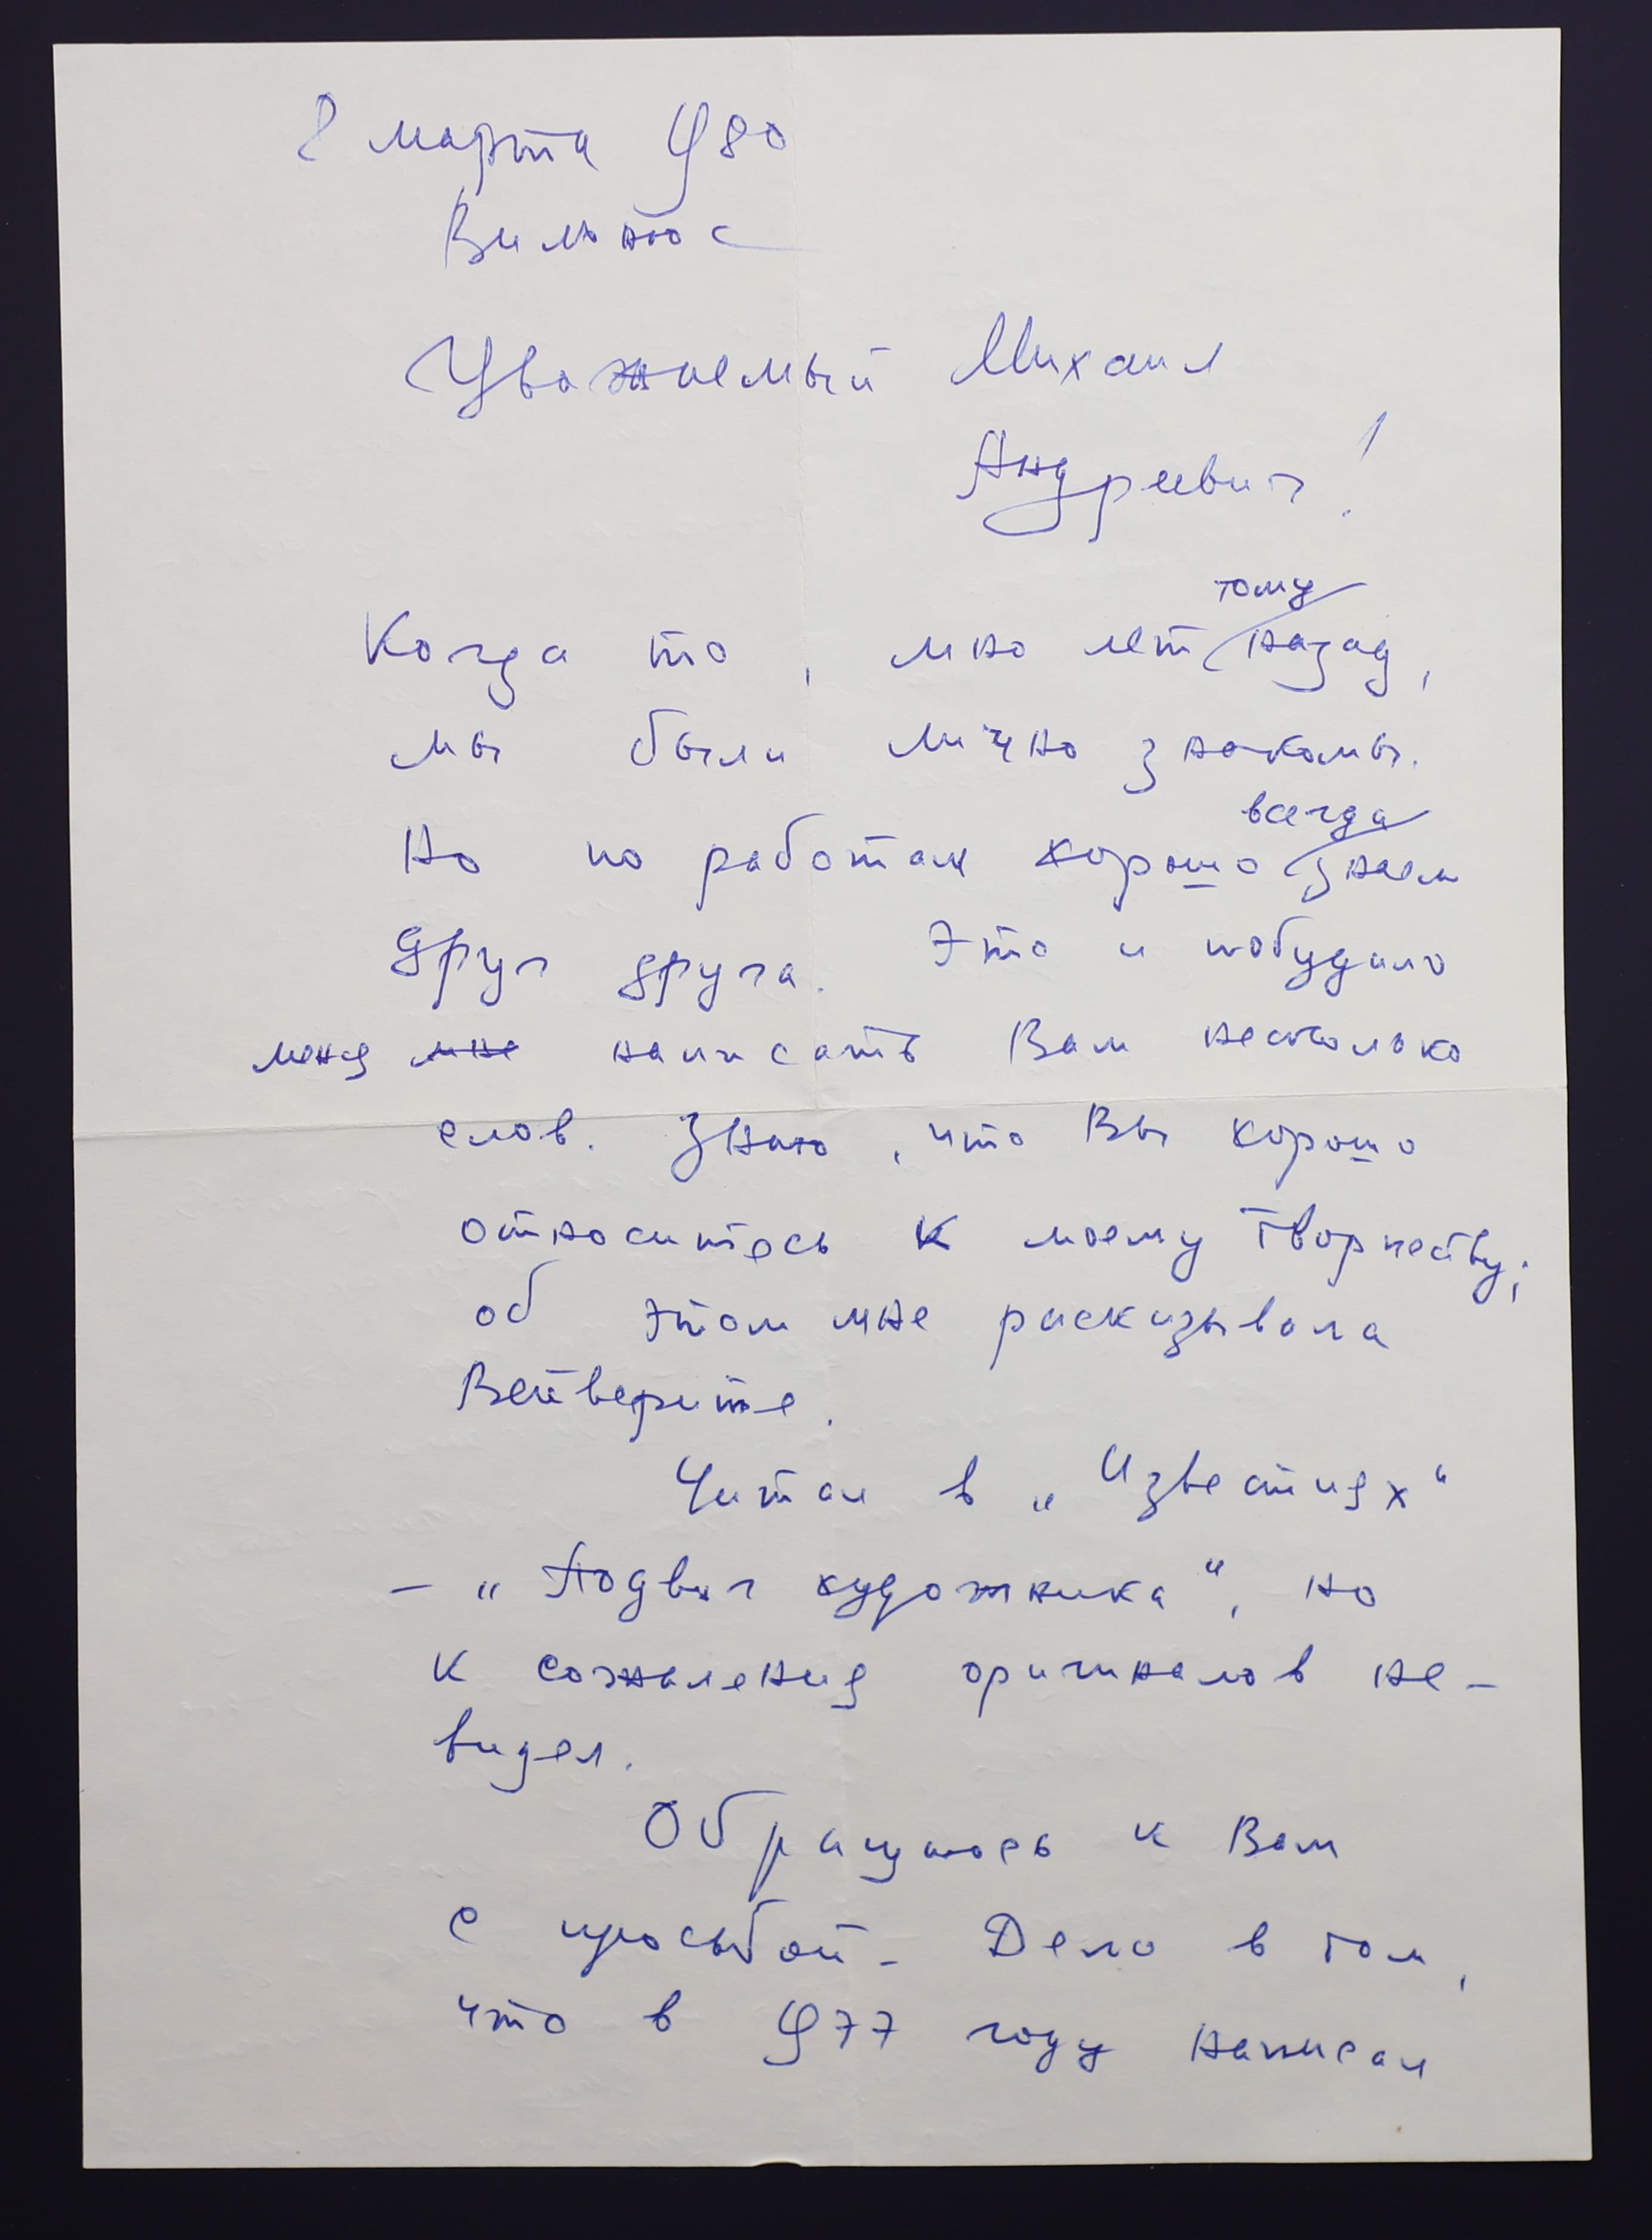 8 марта 980
Вильнюс
Уважаемый Михаил
Андреевич!
тому
Когда то, мно лет назад,
мы были лично знакомы.
всегда
Но по работам хорошо знаем
друг друга. Это и побудило
меня мне написать Вам несколько
слов. Знаю, что Вы хорошо
относитесь к моему творчеству;
об этом мне расказывала
Ветверите.
Читал в „Известиях“
– „Подвиг художника“, но
к сожаления оригиналов не–
видел.
Обращаюсь к Вам
с просьбой – Дело в том,
что в 977 году написал